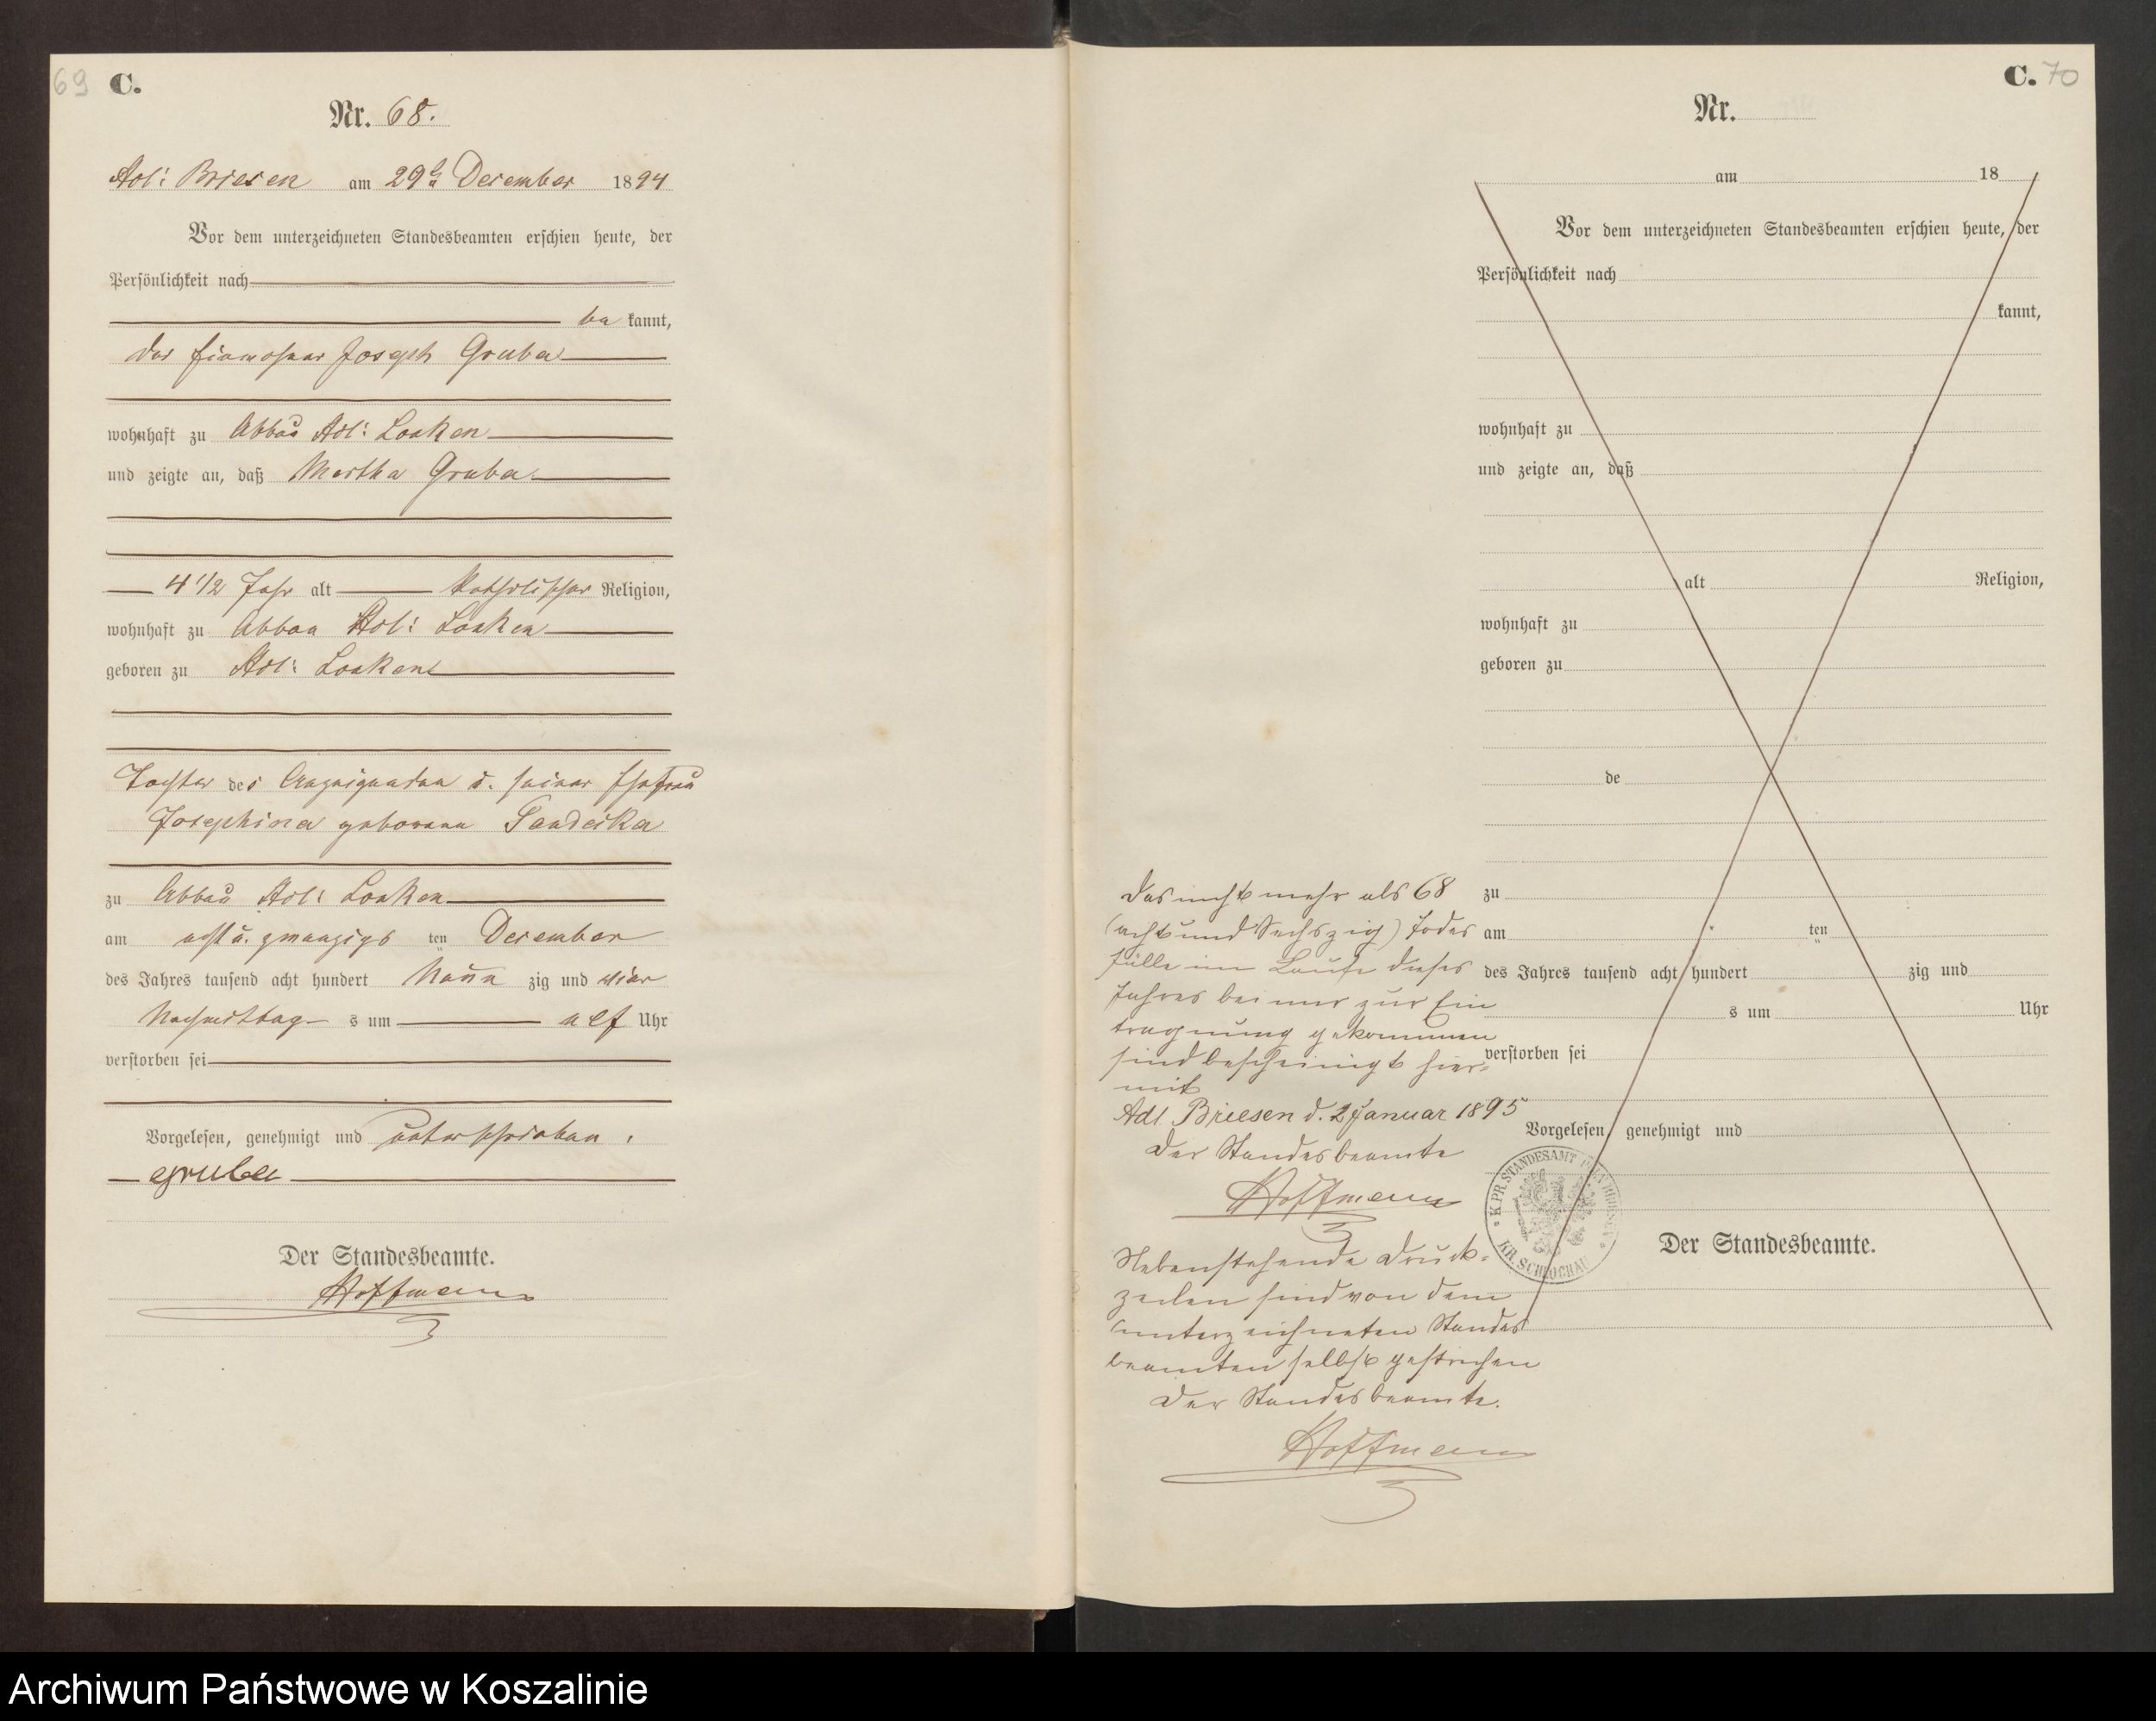 69 C.
Nr. 68.
Adl: Briesen am 29ten December 1894
Vor dem unterzeichneten Standesbeamten erschien heute, der
Persönlichkeit nach
be kannt,
der Einwohner Joseph Gruba
wohnhaft zu Abbau Adl: Loaken
und zeigte an, daß Martha Gruba
4 1/2 Jahr alt katholischer Religion,
wohnhaft zu Abbau Adl: Loaken
geboren zu Adl: Loaken
Tochter des Anzeigenden u. seiner Ehefrau
Josephina geborene
zu Abbau Adl: Loaken
am acht u. zwanzigs ten December
des Jahres tausend acht hundert Neun zig und vier
Nachmittag s um elf Uhr
verstorben sei
Vorgelesen, genehmigt und unterschrieben.
Gruba
Der Standesbeamte.
Hoffmann
C. 70
Nr.
am 18
Vor dem unterzeichneten Standesbeamten erschien heute, der
Persönlichkeit nach
kannt,
wohnhaft zu
und zeigte an, daß
alt Religion,
wohnhaft zu
geboren zu
de
zu
am ten
des Jahres tausend acht hundert zig und
s um Uhr
verstorben sei
Vorgelesen, genehmigt und
Der Standesbeamte.
Das nicht mehr als 68
(acht und Sechszig) Todes
fälle im Laufe dieses
Jahres bei mir zur Ein
tragung gekommen
sind bescheinigt hier-
mit
Adl. Briesen d. 2 Januar 1895
Der Standesbeamte
Hoffmann
K. PR. STANDESAMT
KR. SCHLOCHAU
Nebenstehende Druck-
zeilen sind von dem
unterzeichneten Standes
beamten selbst gestrichen
Der Standesbeamte.
Hoffmann
Archiwum Państwowe w Koszalinie